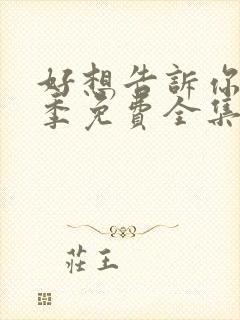 好想告訴你
季免費全集
莊王